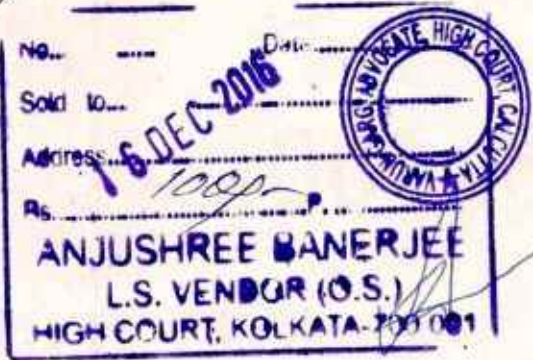 No... ..... Date.........
Sold to...
16 DEC 2016
Address
Rs. 100/- P.
ANJUSHREE BANERJEE
L.S. VENDOR (O.S.)
HIGH COURT, KOLKATA-700 001
VARUN GARG ADVOCATE, HIGH COURT, CALCUTTA